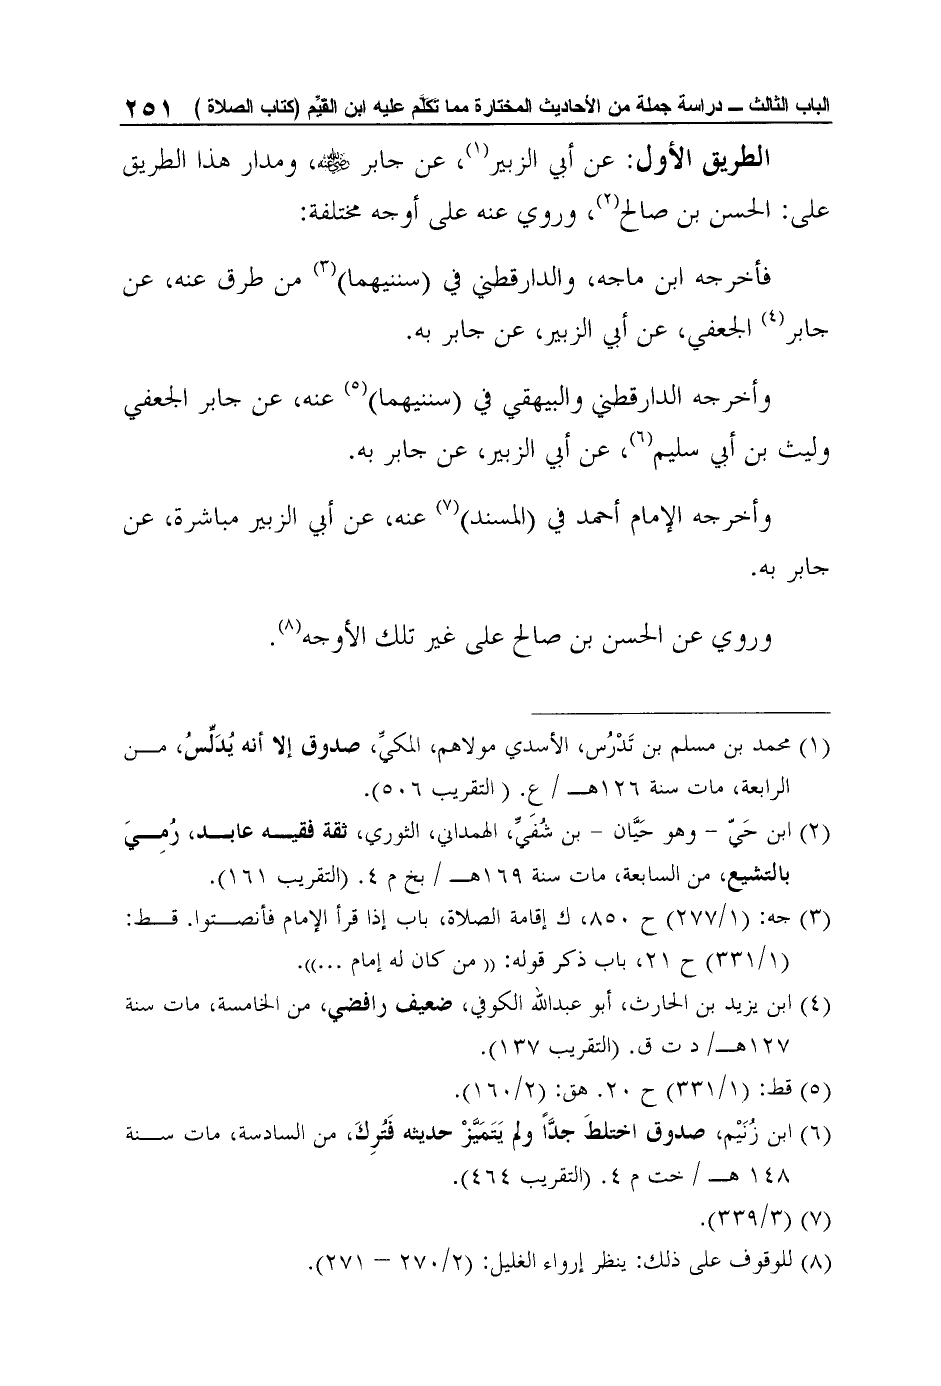 الباب الثالث ــ دراسة جملة من الأحاديث المختارة مما تكلَّم عليه ابن القيِّم (كتاب الصلاة ) ٢٥١
الطريق الأول: عن أبي الزبير(١)، عن جابر ﷺ، ومدار هذا الطريق
على: الحسن بن صالح(٢)، وروي عنه على أوجه مختلفة:
فأخرجه ابن ماجه، والدارقطني في (سننيهما)(٣) من طرق عنه، عن
جابر(٤) الجعفي، عن أبي الزبير، عن جابر به.
وأخرجه الدارقطني والبيهقي في (سننيهما)(٥) عنه، عن جابر الجعفي
وليث بن أبي سليم(٦)، عن أبي الزبير، عن جابر به.
وأخرجه الإمام أحمد في (المسند)(٧) عنه، عن أبي الزبير مباشرة، عن
جابر به.
وروي عن الحسن بن صالح على غير تلك الأوجه(٨).
(١) محمد بن مسلم بن تَدْرُس، الأسدي مولاهم، المكيِّ، صدوق إلا أنه يُدَلِّسُ، مــن
الرابعة، مات سنة ١٢٦هــ / ع. ( التقريب ٥٠٦).
(٢) ابن حَيّ - وهو حَيَّان - بن شُفَيِّ، الهمداني، الثوري، ثقة فقيــه عابــد، رُمِــيَ
بالتشيع، من السابعة، مات سنة ١٦٩هــ / بخ م ٤. (التقريب ١٦١).
(٣) جه: (٢٧٧/١) ح ٨٥٠، ك إقامة الصلاة، باب إذا قرأ الإمام فأنصــتوا. قــط:
(٣٣١/١) ح ٢١، باب ذكر قوله: (( من كان له إمام ...)).
(٤) ابن يزيد بن الحارث، أبو عبدالله الكوفي، ضعيف رافضي، من الخامسة، مات سنة
١٢٧هــ/ د ت ق. (التقريب ١٣٧).
(٥) قط: (٣٣١/١) ح ٢٠. هق: (١٦٠/٢).
(٦) ابن زُنَيْم، صدوق اختلطَ جدَّاً ولم يَتَمَيَّزْ حديثه فَتُرِكَ، من السادسة، مات ســنة
١٤٨ هــ / خت م ٤. (التقريب ٤٦٤).
(٧) (٣٣٩/٣).
(٨) للوقوف على ذلك: ينظر إرواء الغليل: (٢٧٠/٢ – ٢٧١).